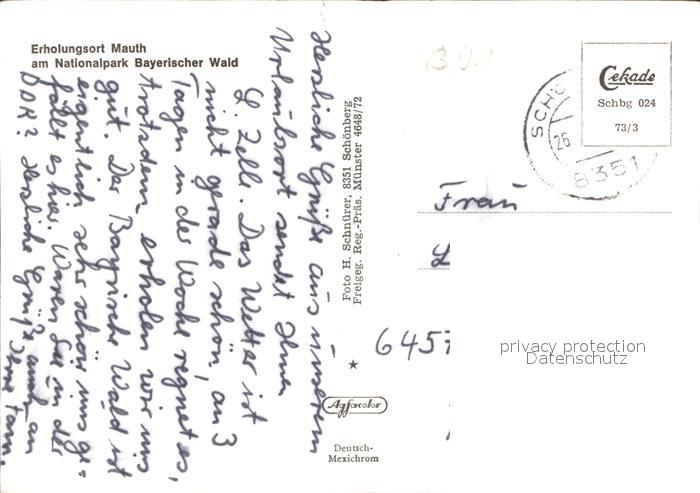 Erholungsort Mauth
am Nationalpark Bayerischer Wald
Herzliche Grüße aus unserem
Urlaubsort sendet Ihnen
L. Zelle. Das Wetter ist
nicht gerade schön, an 3
Tagen in der Woche regnet es,
trotzdem erholen wir uns
gut. Der Bayrische Wald ist
eigentlich sehr schön uns ge=
fällt es hier. Waren Sie in der
DDR? Herzliche Grüße auch an
Ihre Fam.
Foto H. Schnürer, 8351 Schönberg
Freigeg. Reg.-Präs. Münster 4648/72
Agfacolor
Deutsch-
Mexichrom
Cekade
Schbg 024
73/3
SCHÖ
26
8351
Frau
645
privacy protection
Datenschutz